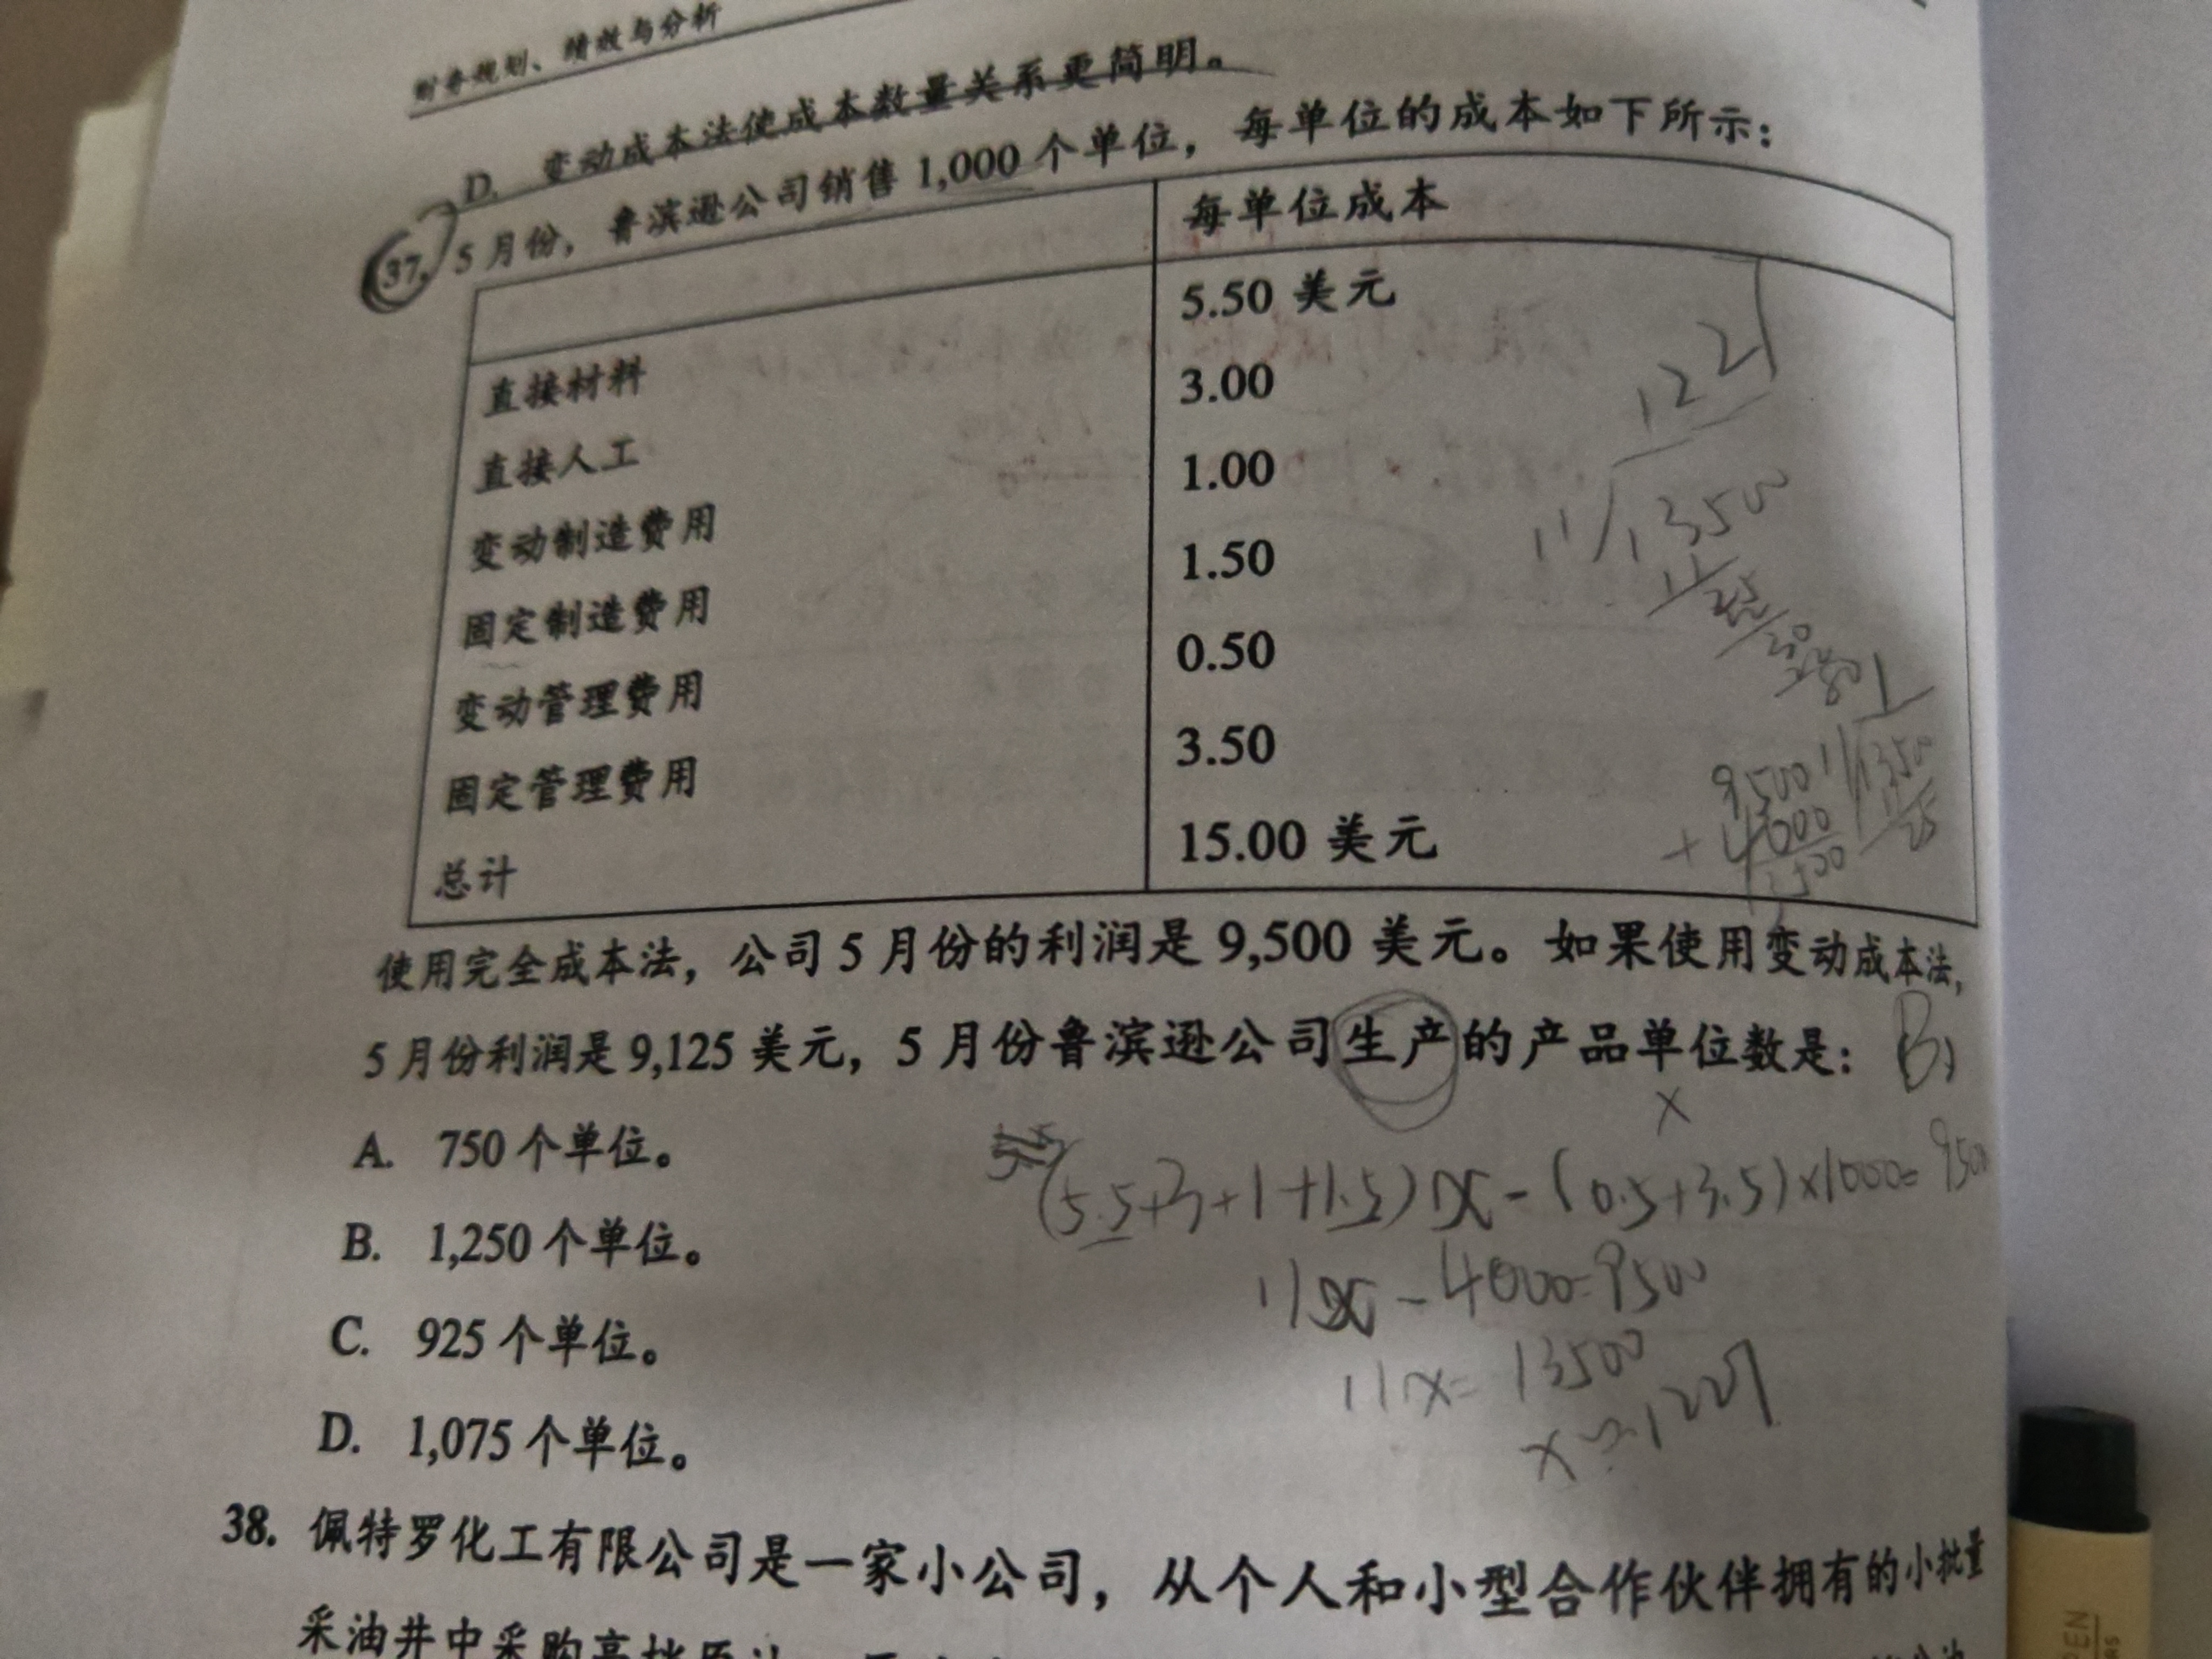 财务规划、绩效与分析
D. 变动成本法使成本数量关系更简明。
37. 5 月份，鲁滨逊公司销售 1,000 个单位，每单位的成本如下所示：
每单位成本
直接材料 5.50 美元
直接人工 3.00
变动制造费用 1.00
固定制造费用 1.50
变动管理费用 0.50
固定管理费用 3.50
总计 15.00 美元
122
11 13500
9500
+ 4000
使用完全成本法，公司 5 月份的利润是 9,500 美元。如果使用变动成本法，
5 月份利润是 9,125 美元，5 月份鲁滨逊公司生产的产品单位数是：
B
x
A. 750 个单位。
(5.5+3+1+1.5)x-(0.5+3.5)×1000=9500
B. 1,250 个单位。
11x-4000=9500
C. 925 个单位。
11x=13500
D. 1,075 个单位。
38. 佩特罗化工有限公司是一家小公司，从个人和小型合作伙伴拥有的小批量
采油井中采购高
PEN